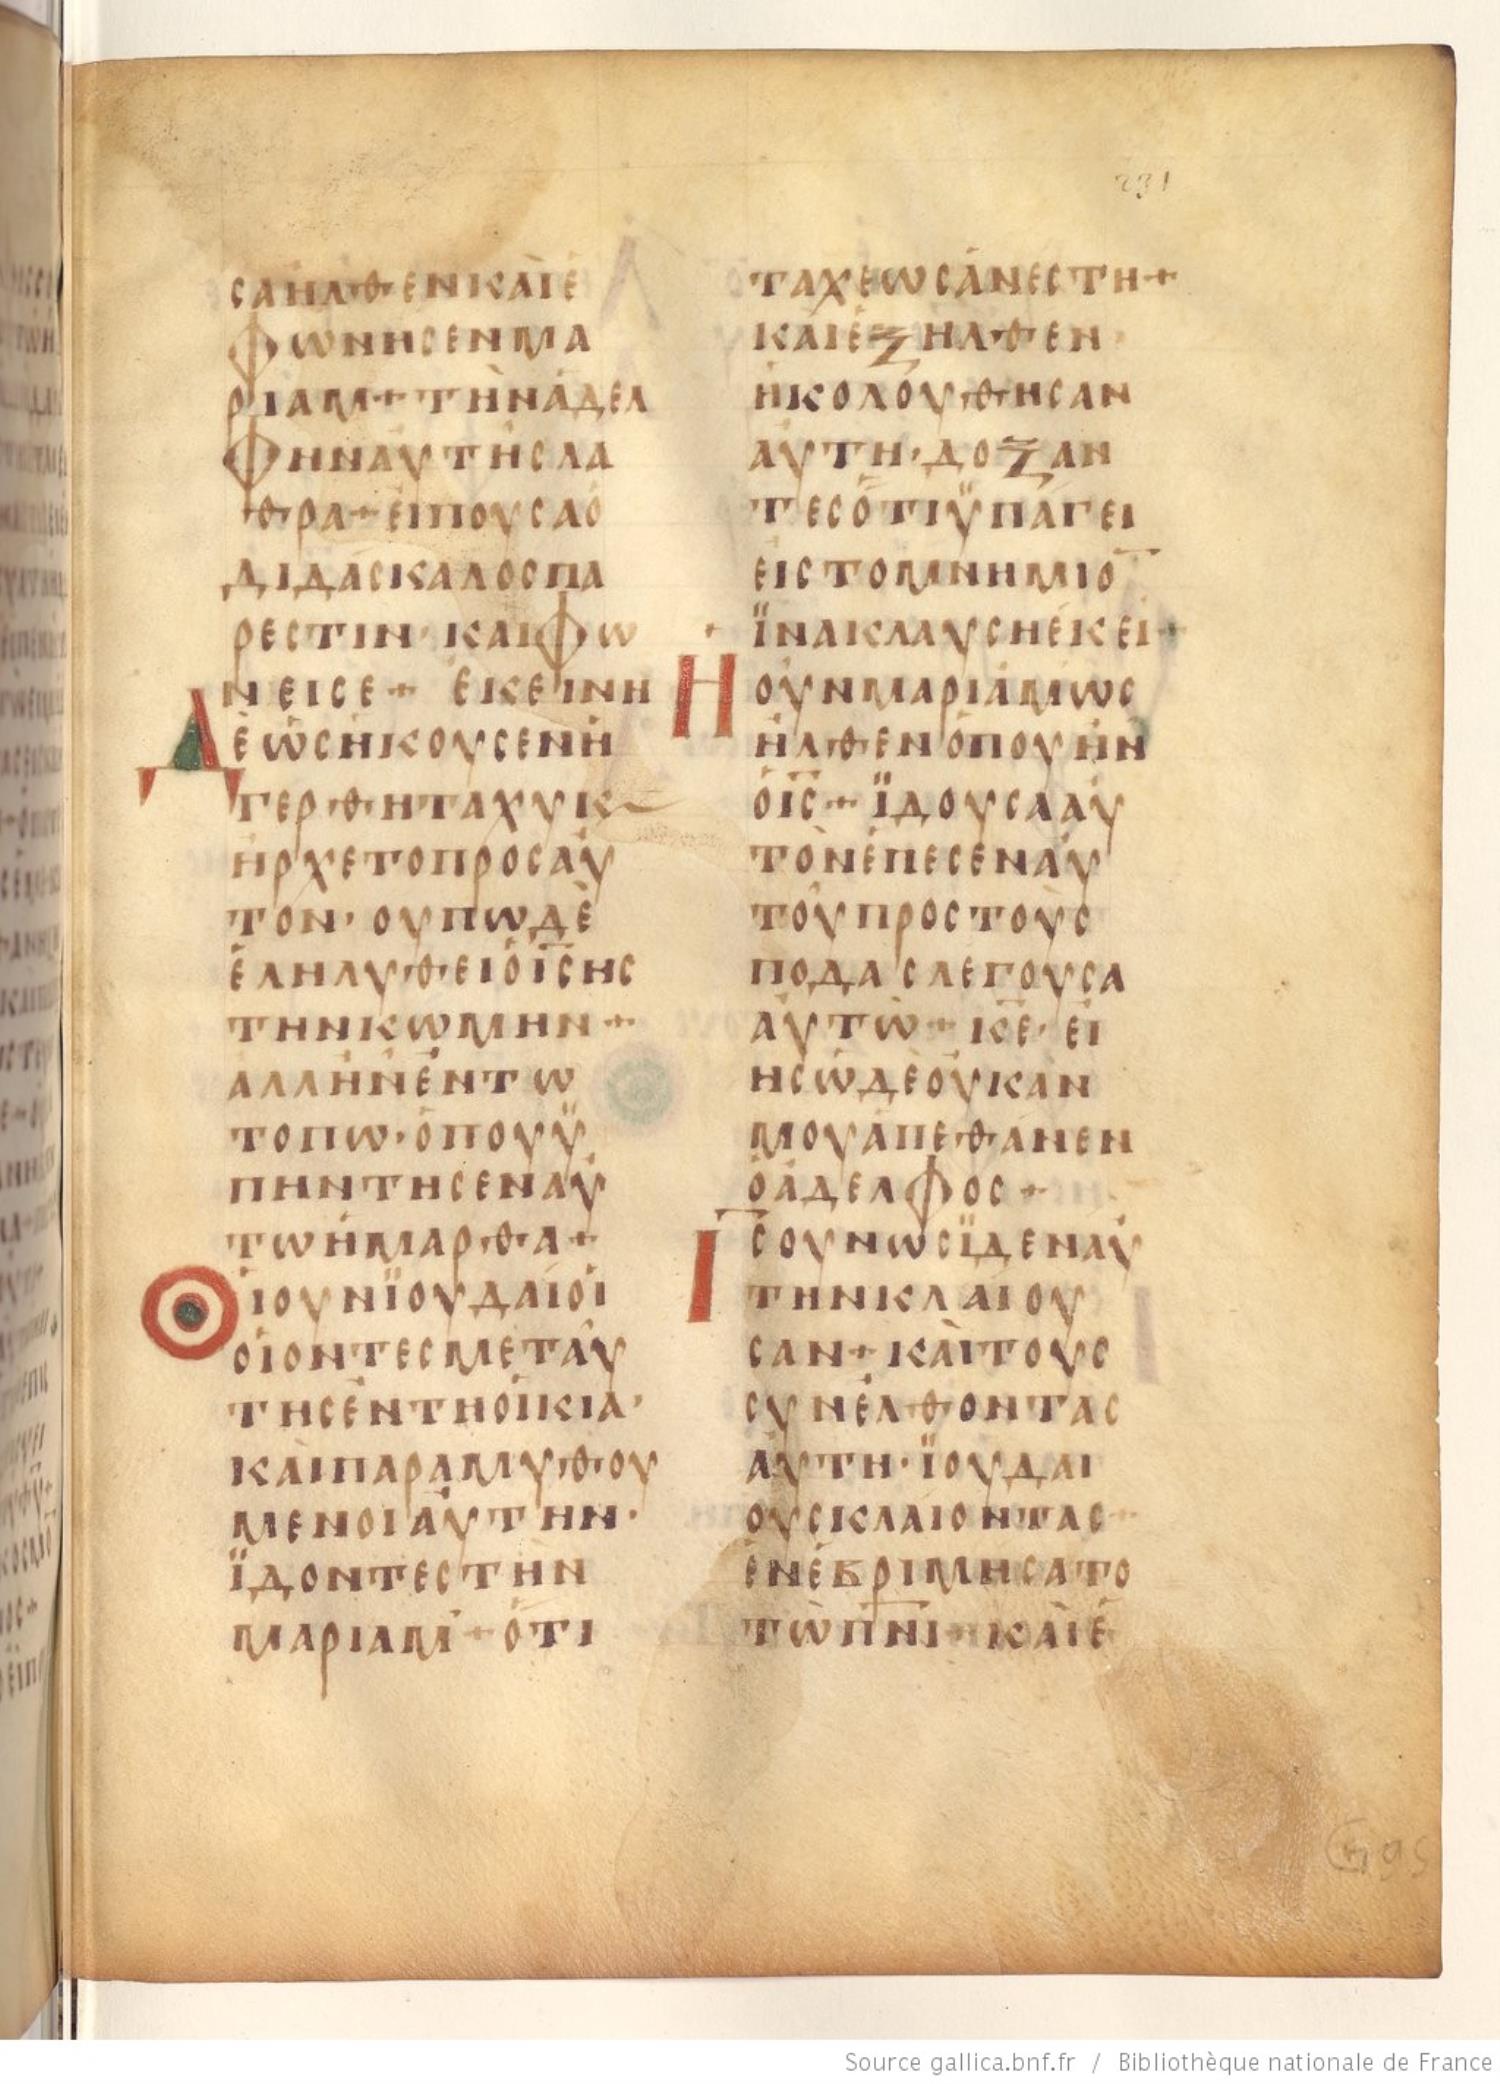 231
ϹΑΠΗΛΘΕΝΚΑΙΕ
ΦΩΝΗϹΕΝΜΑ
ΡΙΑΜ+ΤΗΝΑΔΕΛ
ΦΗΝΑΥΤΗϹΛΑ
ΘΡΑ+ΕΙΠΟΥϹΑΟ
ΔΙΔΑϹΚΑΛΟϹΠΑ
ΡΕϹΤΙΝ·ΚΑΙΦΩ
ΝΕΙϹΕ+ ΕΚΕΙΝΗ
ΔΕΩϹΗΚΟΥϹΕΝΗ
ΓΕΡΘΗΤΑΧΥΚ
ΗΡΧΕΤΟΠΡΟϹΑΥ
ΤΟΝ·ΟΥΠΩΔΕ
ΕΛΗΛΥΘΕΙΟΙ̅Ϲ̅ΗϹ
ΤΗΝΚΩΜΗΝ+
ΑΛΛΗΝΕΝΤΩ
ΤΟΠΩ·ΟΠΟΥΫ
ΠΗΝΤΗϹΕΝΑΥ
ΤΩΗΜΑΡΘΑ+
ΟΙΟΥΝΪΟΥΔΑΙΟΙ
ΟΙΟΝΤΕϹΜΕΤΑΥ
ΤΗϹΕΝΤΗΟΙΚΙΑ·
ΚΑΙΠΑΡΑΜΥΘΟΥ
ΜΕΝΟΙΑΥΤΗΝ·
ΪΔΟΝΤΕϹΤΗΝ
ΜΑΡΙΑΜ+ΟΤΙ
ΤΑΧΕΩϹΑΝΕϹΤΗ+
ΚΑΙΕΞΗΛΘΕΝ·
ΗΚΟΛΟΥΘΗϹΑΝ
ΑΥΤΗ·ΔΟΞΑΝ
ΤΕϹΟΤΙΫΠΑΓΕΙ
ΕΙϹΤΟΜΝΗΜΙΟ̅
ΪΝΑΚΛΑΥϹΗΕΚΕΙ+
ΗΟΥΝΜΑΡΙΑΜΩϹ
ΗΛΘΕΝΟΠΟΥΗΝ
ΟΙ̅Ϲ̅+ΪΔΟΥϹΑΑΥ
ΤΟΝΕΠΕϹΕΝΑΥ
ΤΟΥΠΡΟϹΤΟΥϹ
ΠΟΔΑϹΛΕΓΟΥϹΑ
ΑΥΤΩ+Κ̅Ε̅·ΕΙ
ΗϹΩΔΕΟΥΚΑΝ
ΜΟΥΑΠΕΘΑΝΕΝ
ΟΑΔΕΛΦΟϹ+
Ι̅Ϲ̅ΟΥΝΩϹΪΔΕΝΑΥ
ΤΗΝΚΛΑΙΟΥ
ϹΑΝ+ΚΑΙΤΟΥϹ
ϹΥΝΕΛΘΟΝΤΑϹ
ΑΥΤΗ·ΪΟΥΔΑΙ
ΟΥϹΚΛΑΙΟΝΤΑϹ
ΕΝΕΒΡΙΜΗϹΑΤΟ
ΤΩΠ̅Ν̅Ι̅+ΚΑΙΕ
Source gallica.bnf.fr / Bibliothèque nationale de France